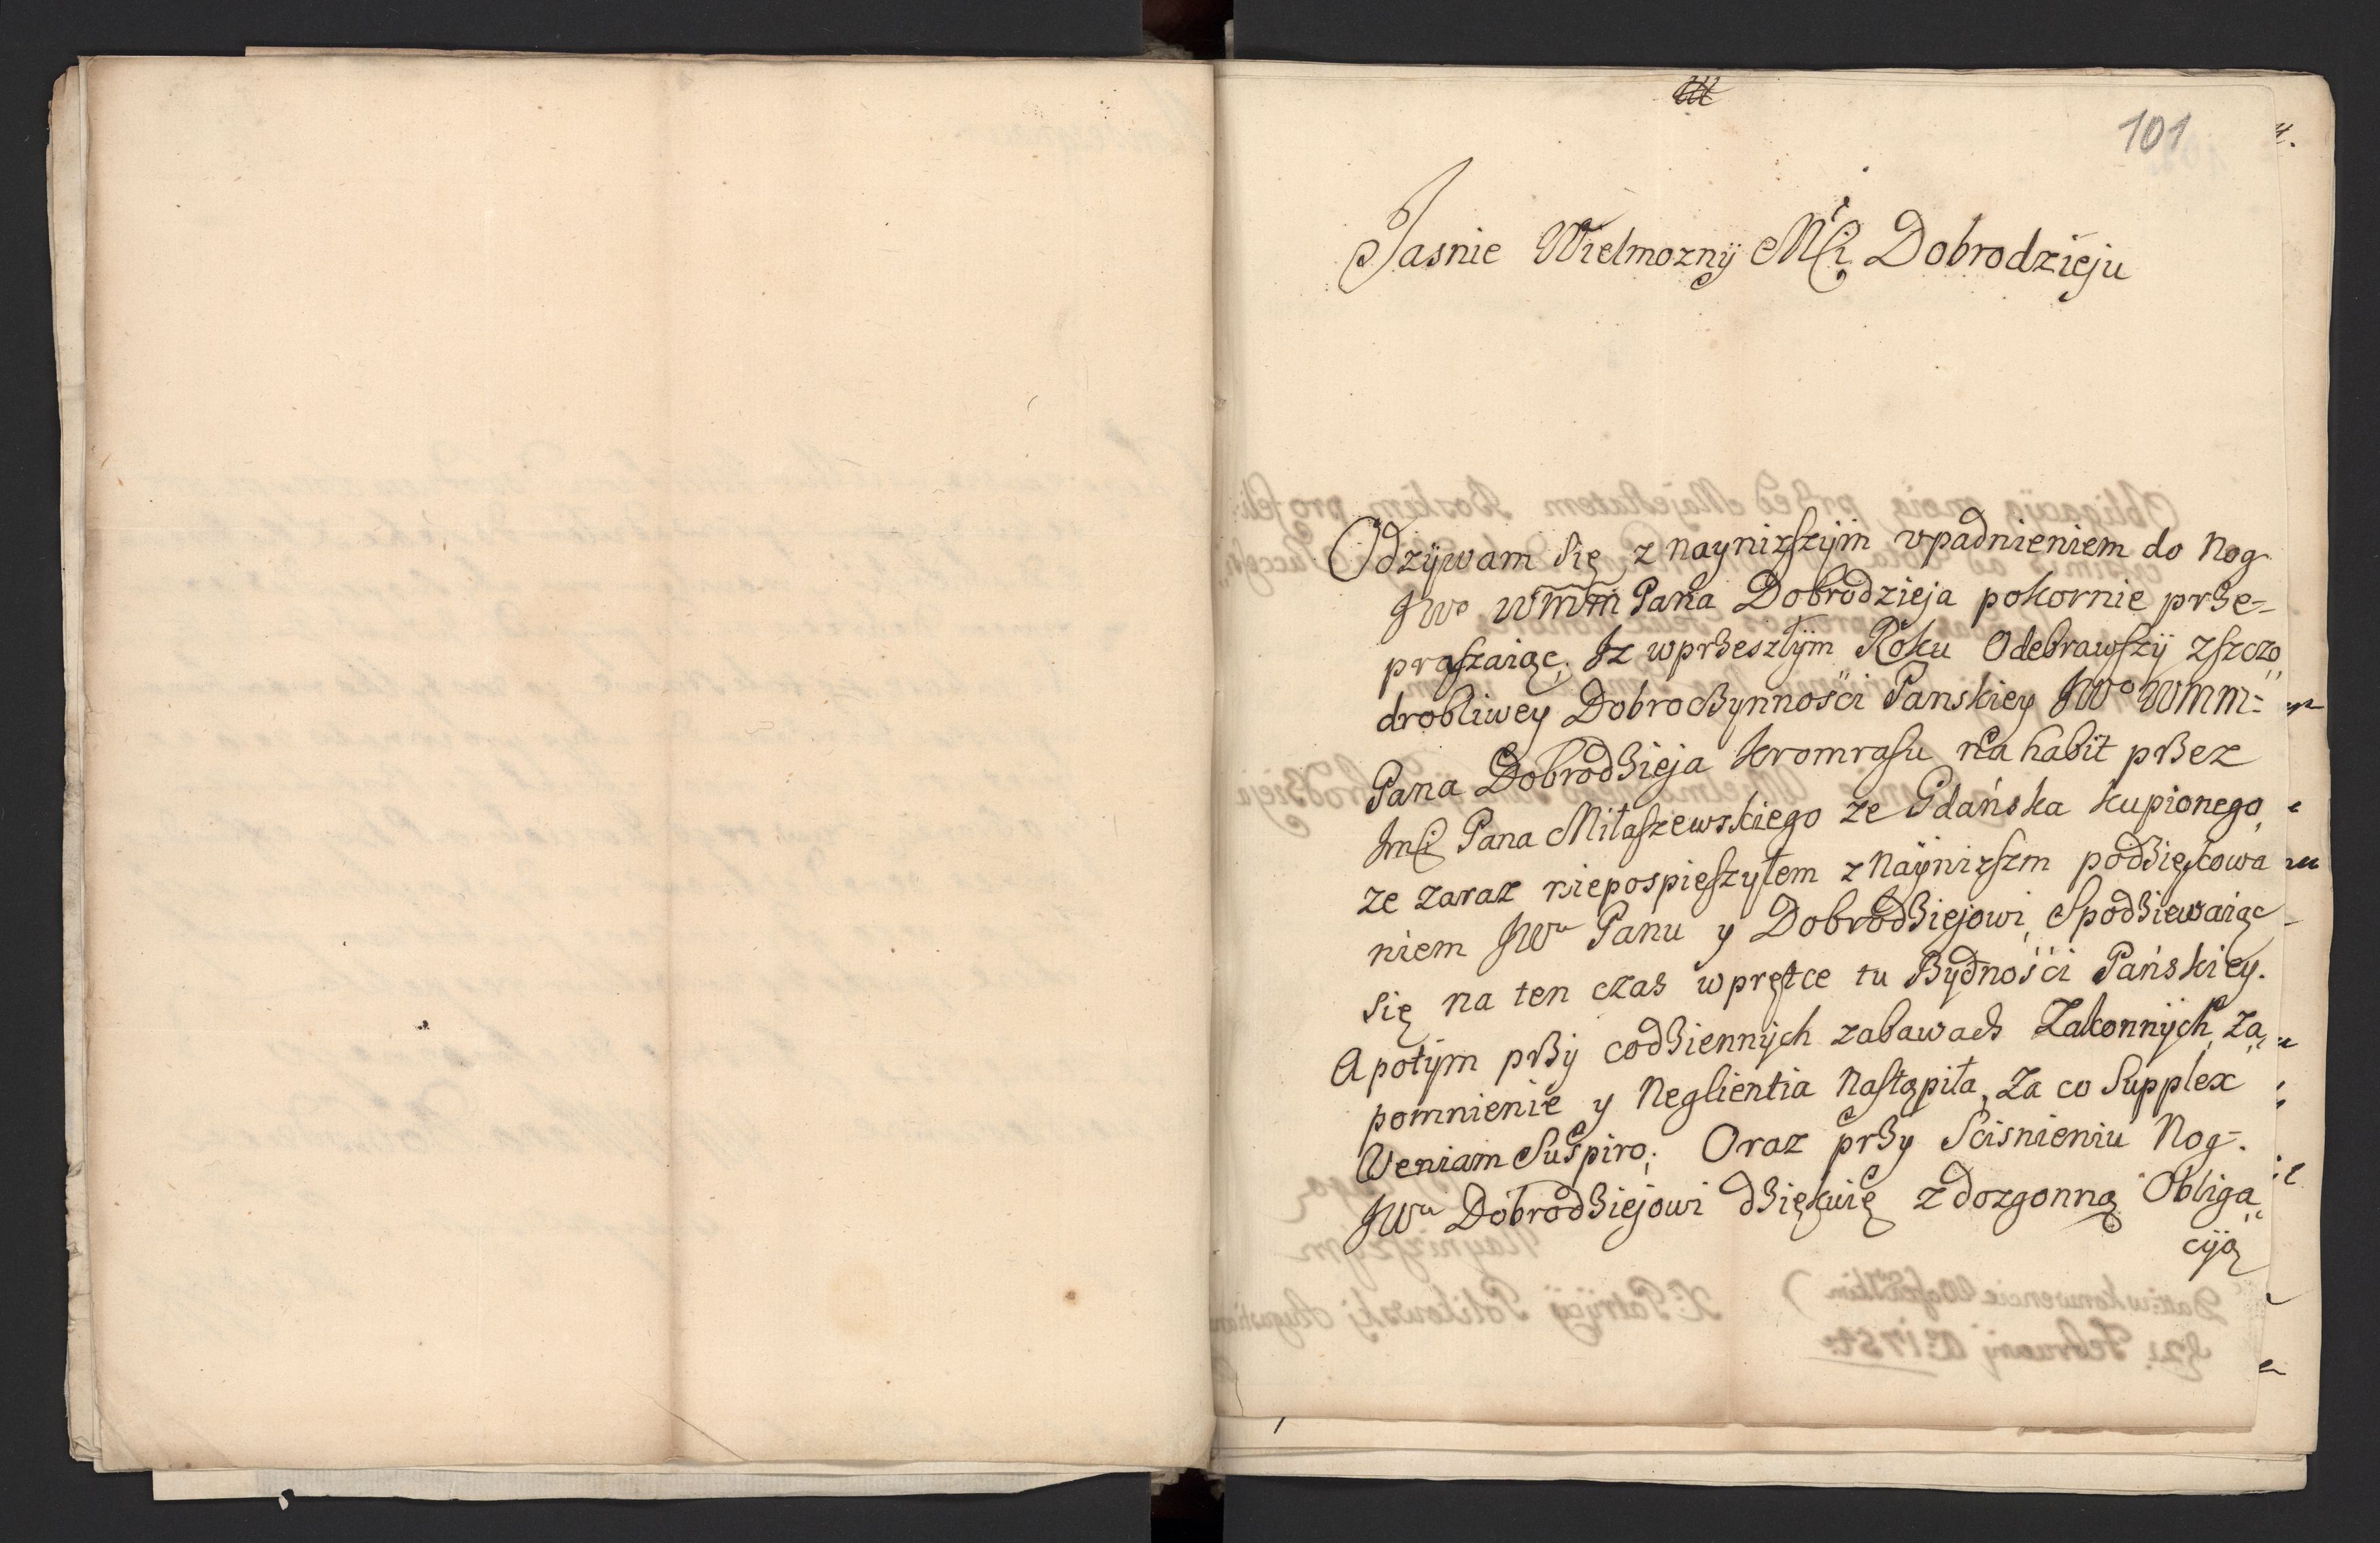 101
Jasnie Wielmozny Mći Dobrodzieju
Odzÿwam Się z naynizszÿm vpadnieniem do Nog
JWo WMM Pana Dobrodzieja pokornie prze-
praszaiąc. Iz wprzeszłÿm Roku Odebrawszÿ zszczo„
drobliwey Dobroczynnosći Panskiey JWo WMM:
Pana Dobrodzieja kromrasu na habit przez
Jmći Pana Miłaszewskiego ze Gdańska kupionego,
ze zaraz niepospieszyłem z Naynizszm podzięcowa
niem JWu Panu y Dobrodziejowi, Spodziewaiąc
Się na ten czas wprętce tu Bydnośći Pańskiey.
A potÿm przÿ codziennÿch zabawach Zakonnÿch, Za„
pomnienie y Neglientia Nastąpiła, Za co Supplex
Veniam Suspiro; Oraz przy Scisnieniu Nog.
JWu Dobrodziejowi dziękuię z dozgonną Obliga„
cÿą